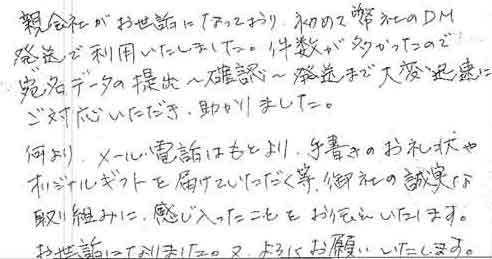 親会社がお世話になっており、初めて弊社のDM
発送で利用いたしました。件数が多かったので
宛名データの提出〜確認〜発送まで大変迅速に
ご対応いただき、助かりました。
何より、メール・電話はもとより、手書きのお礼状や
オリジナルギフトを届けていただく等、御社の誠実な
取り組みに、感じ入ったことをお伝えいたします。
お世話になりました。又、よろしくお願いいたします。